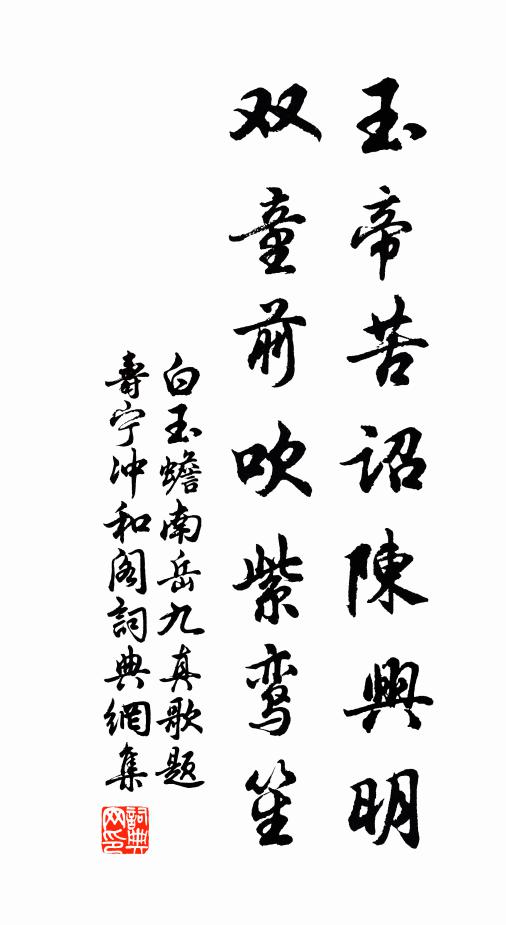 玉帝苦詔陳興明
双童前吹紫鸾笙
白玉蟾南岳九真歌题
壽宁冲和阁詞典網集
詞典网印